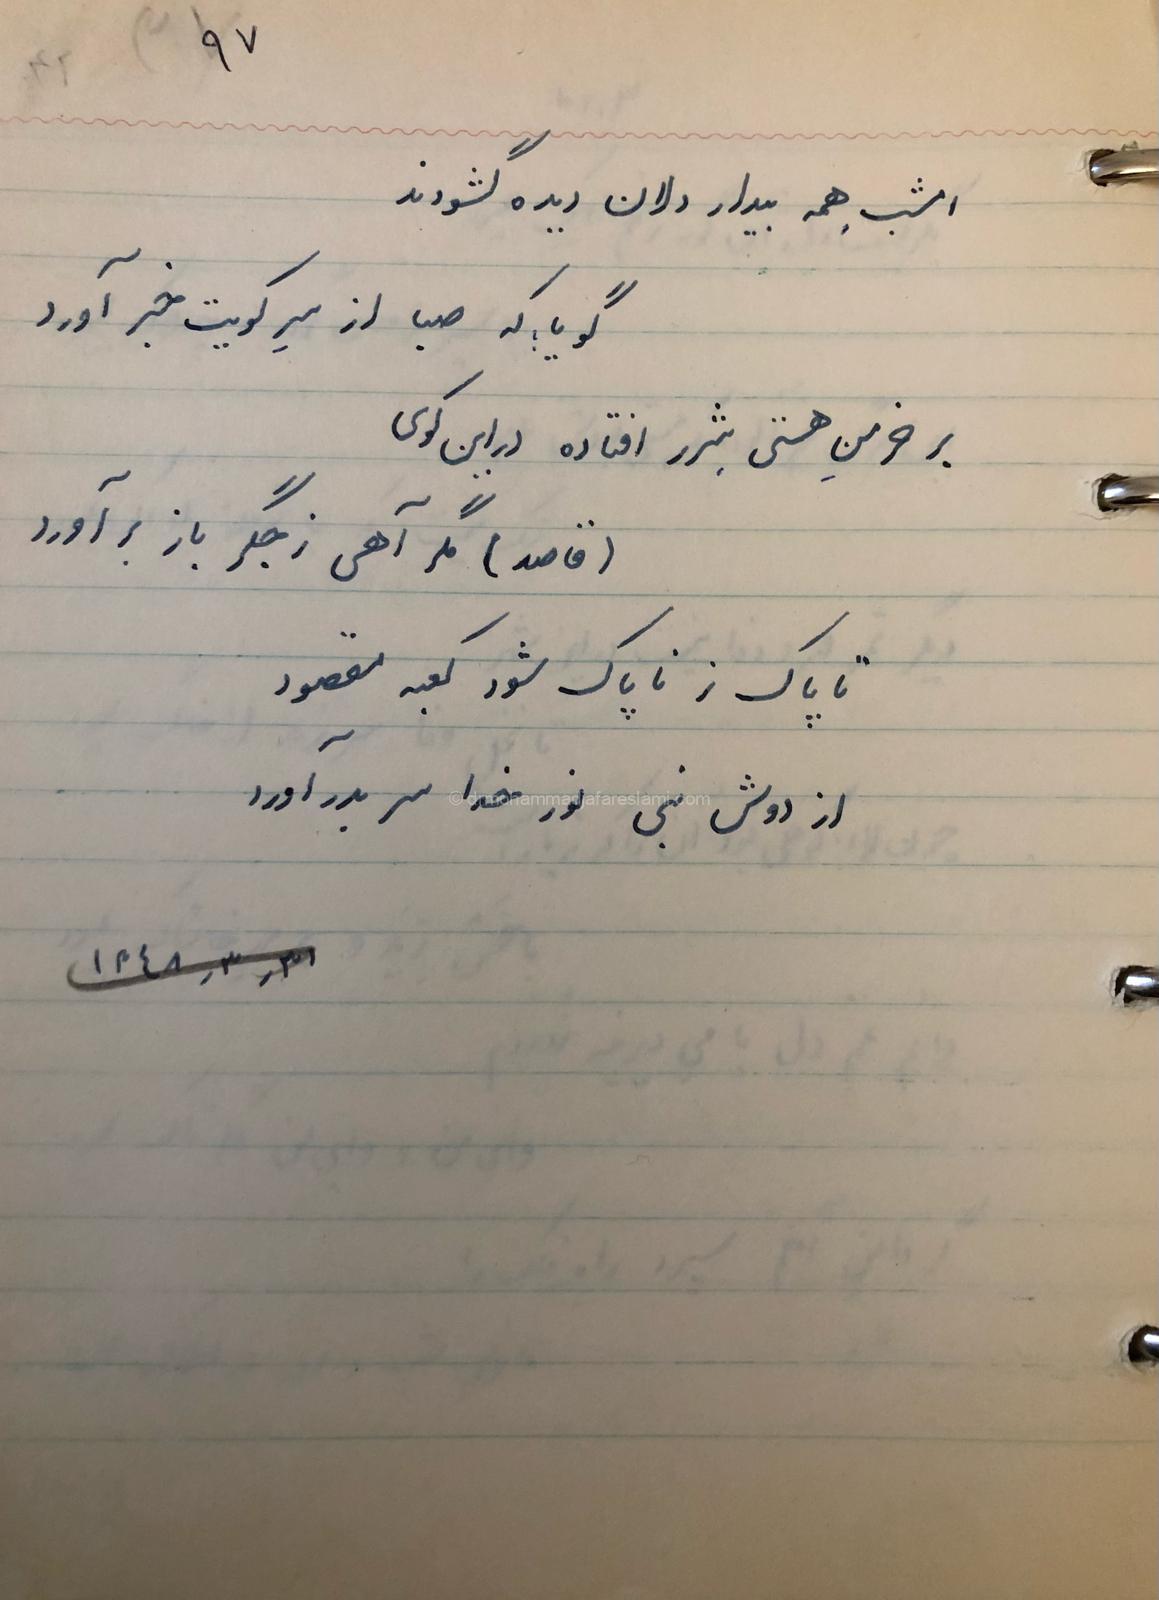 ۹۷
امشب همه بیدار دلان دیده گشودند
گویا؛ که صبا از سرِ کویت خبر آورد
بر خرمنِ هستی شرر افتاده در این کوی
(قاصد) مگر آهی ز جگر باز بر آورد
تا پاک ز ناپاک شود کعبه مقصود
از دوش نبی نور خدا سر بدر آورد
© drmohammadjafareslami.com
۳۱ر۳ر۱۳۴۸